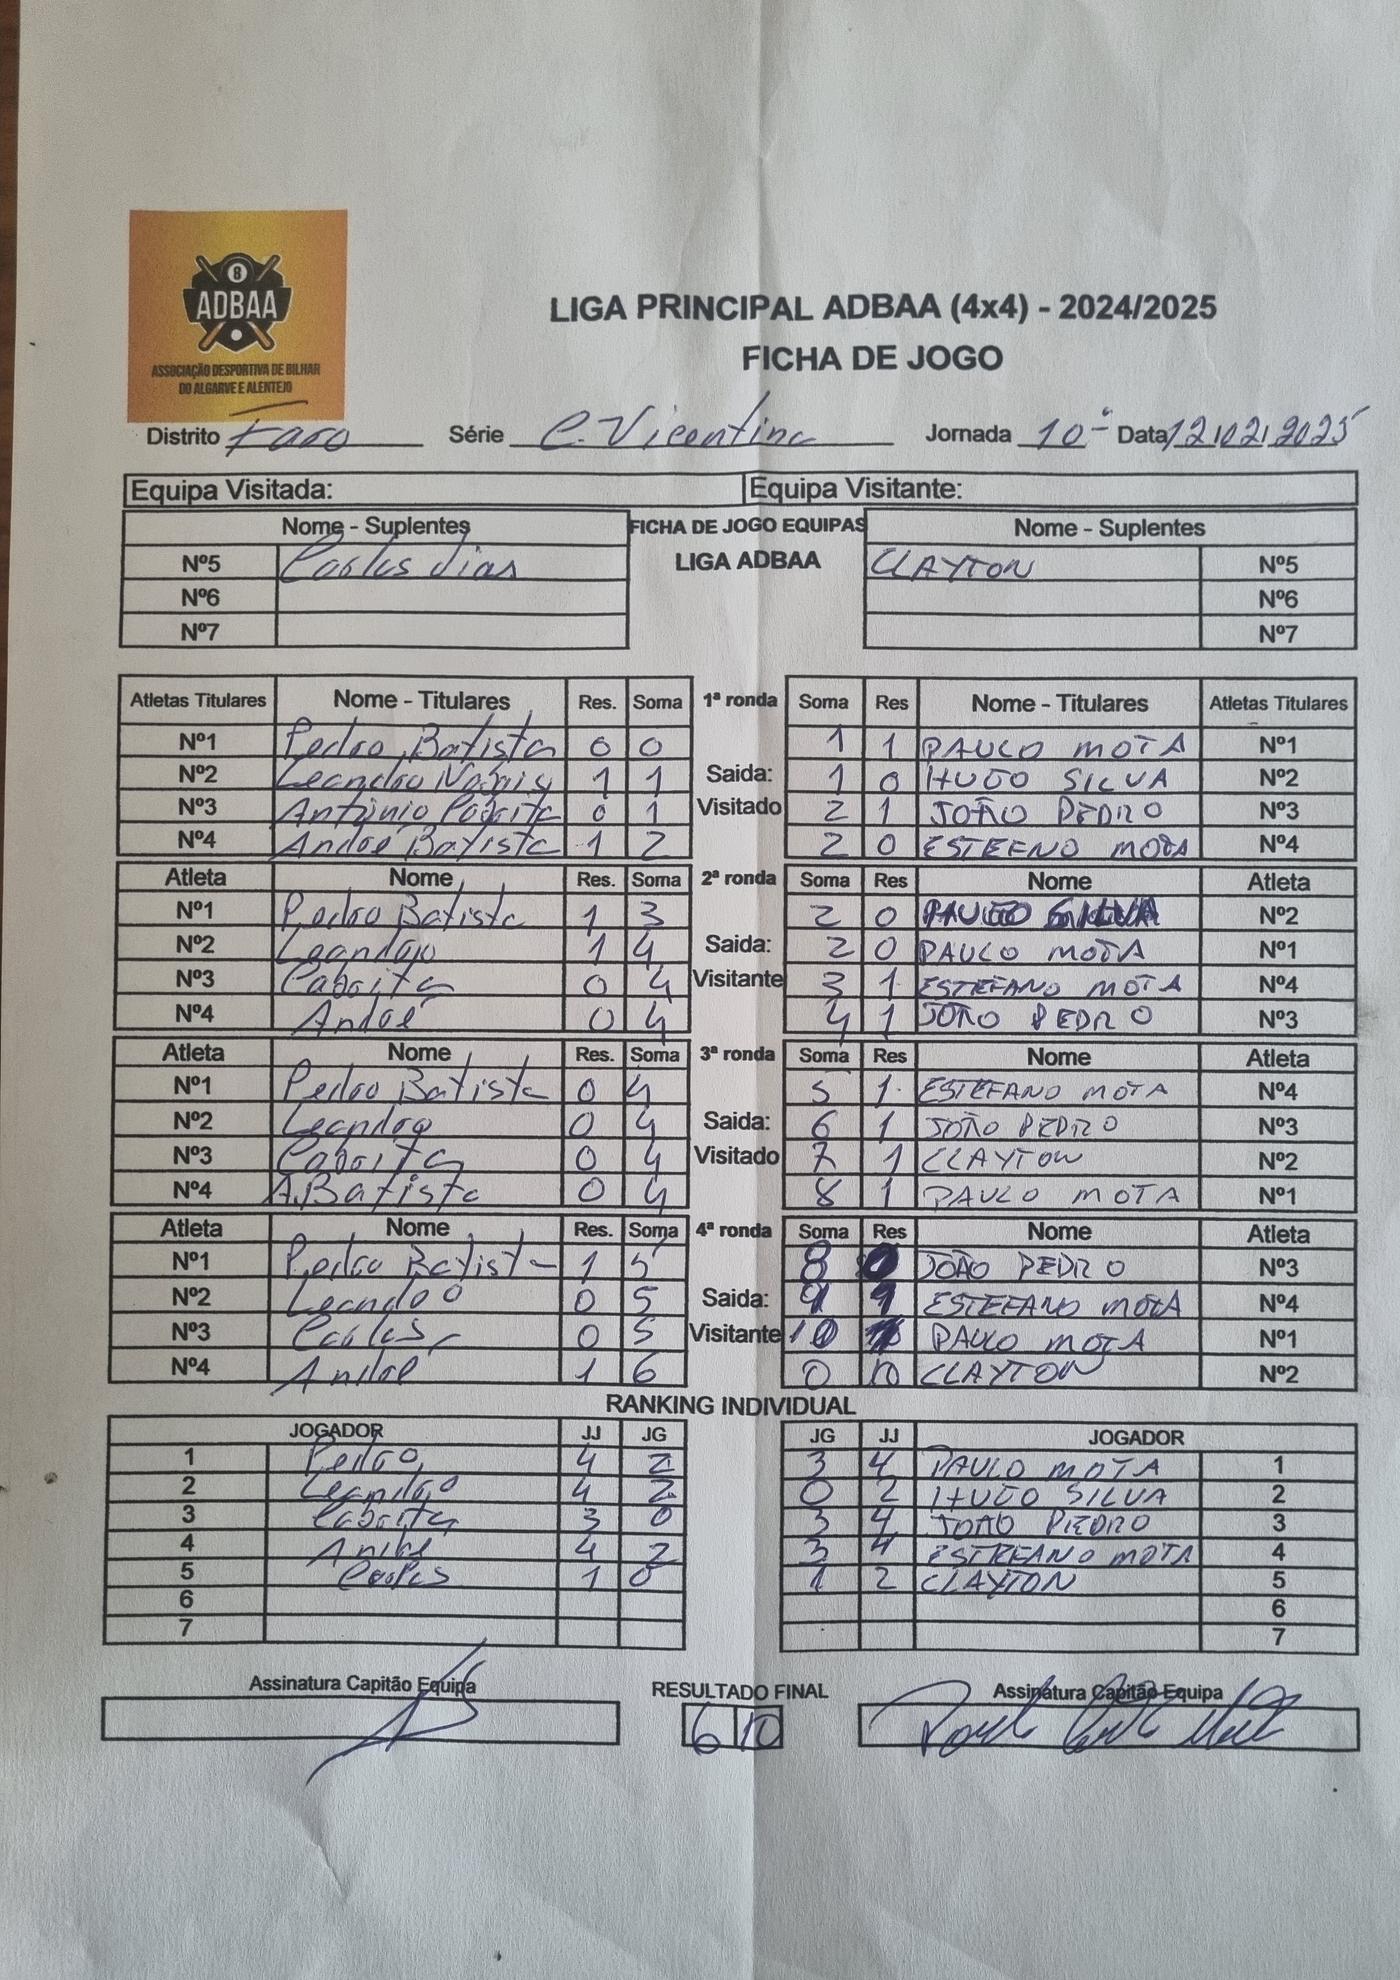 8
ADBAA
ASSOCIAÇÃO DESPORTIVA DE BILHAR
DO ALGARVE E ALENTEJO
LIGA PRINCIPAL ADBAA (4x4) - 2024/2025
FICHA DE JOGO
Distrito Faro Série C. Vicentina Jornada 10ª Data 12/02/2025
Equipa Visitada: Equipa Visitante:
Nome - Suplentes FICHA DE JOGO EQUIPAS Nome - Suplentes
Nº5 Carlos Dias LIGA ADBAA CLAYTON Nº5
Nº6 Nº6
Nº7 Nº7
Atletas Titulares Nome - Titulares Res. Soma 1ª ronda Soma Res Nome - Titulares Atletas Titulares
Nº1 Pedro Batista 0 0 1 1 PAULO MOTA Nº1
Nº2 Leandro 1 1 Saida: 1 0 HUGO SILVA Nº2
Nº3 António Cabrita 0 1 Visitado 2 1 JOÃO PEDRO Nº3
Nº4 André Batista 1 2 2 0 ESTEFNO MOTA Nº4
Atleta Nome Res. Soma 2ª ronda Soma Res Nome Atleta
Nº1 Pedro Batista 1 3 2 0 SILVA Nº2
Nº2 Leandro 1 4 Saida: 2 0 PAULO MOTA Nº1
Nº3 Cabrita 0 4 Visitante 3 1 ESTEFANO MOTA Nº4
Nº4 André 0 4 4 1 JOÃO PEDRO Nº3
Atleta Nome Res. Soma 3ª ronda Soma Res Nome Atleta
Nº1 Pedro Batista 0 4 5 1 ESTEFANO MOTA Nº4
Nº2 Leandro 0 4 Saida: 6 1 JOÃO PEDRO Nº3
Nº3 Cabrita 0 4 Visitado 7 1 CLAYTON Nº2
Nº4 A.Batista 0 4 8 1 PAULO MOTA Nº1
Atleta Nome Res. Soma 4ª ronda Soma Res Nome Atleta
Nº1 Pedro Batista 1 5 8 0 JOÃO PEDRO Nº3
Nº2 Leandro 0 5 Saida: 9 1 ESTEFANO MOTA Nº4
Nº3 Carlos 0 5 Visitante 10 1 PAULO MOTA Nº1
Nº4 André 1 6 0 CLAYTON Nº2
RANKING INDIVIDUAL
JOGADOR JJ JG JG JJ JOGADOR
1 Pedro 4 2 3 4 PAULO MOTA 1
2 Leandro 4 2 0 2 HUGO SILVA 2
3 Cabrita 3 0 3 4 JOÃO PEDRO 3
4 André 4 2 3 4 ESTEFANO MOTA 4
5 Carlos 1 0 1 2 CLAYTON 5
6 6
7 7
Assinatura Capitão Equipa RESULTADO FINAL Assinatura Capitão Equipa
6 10